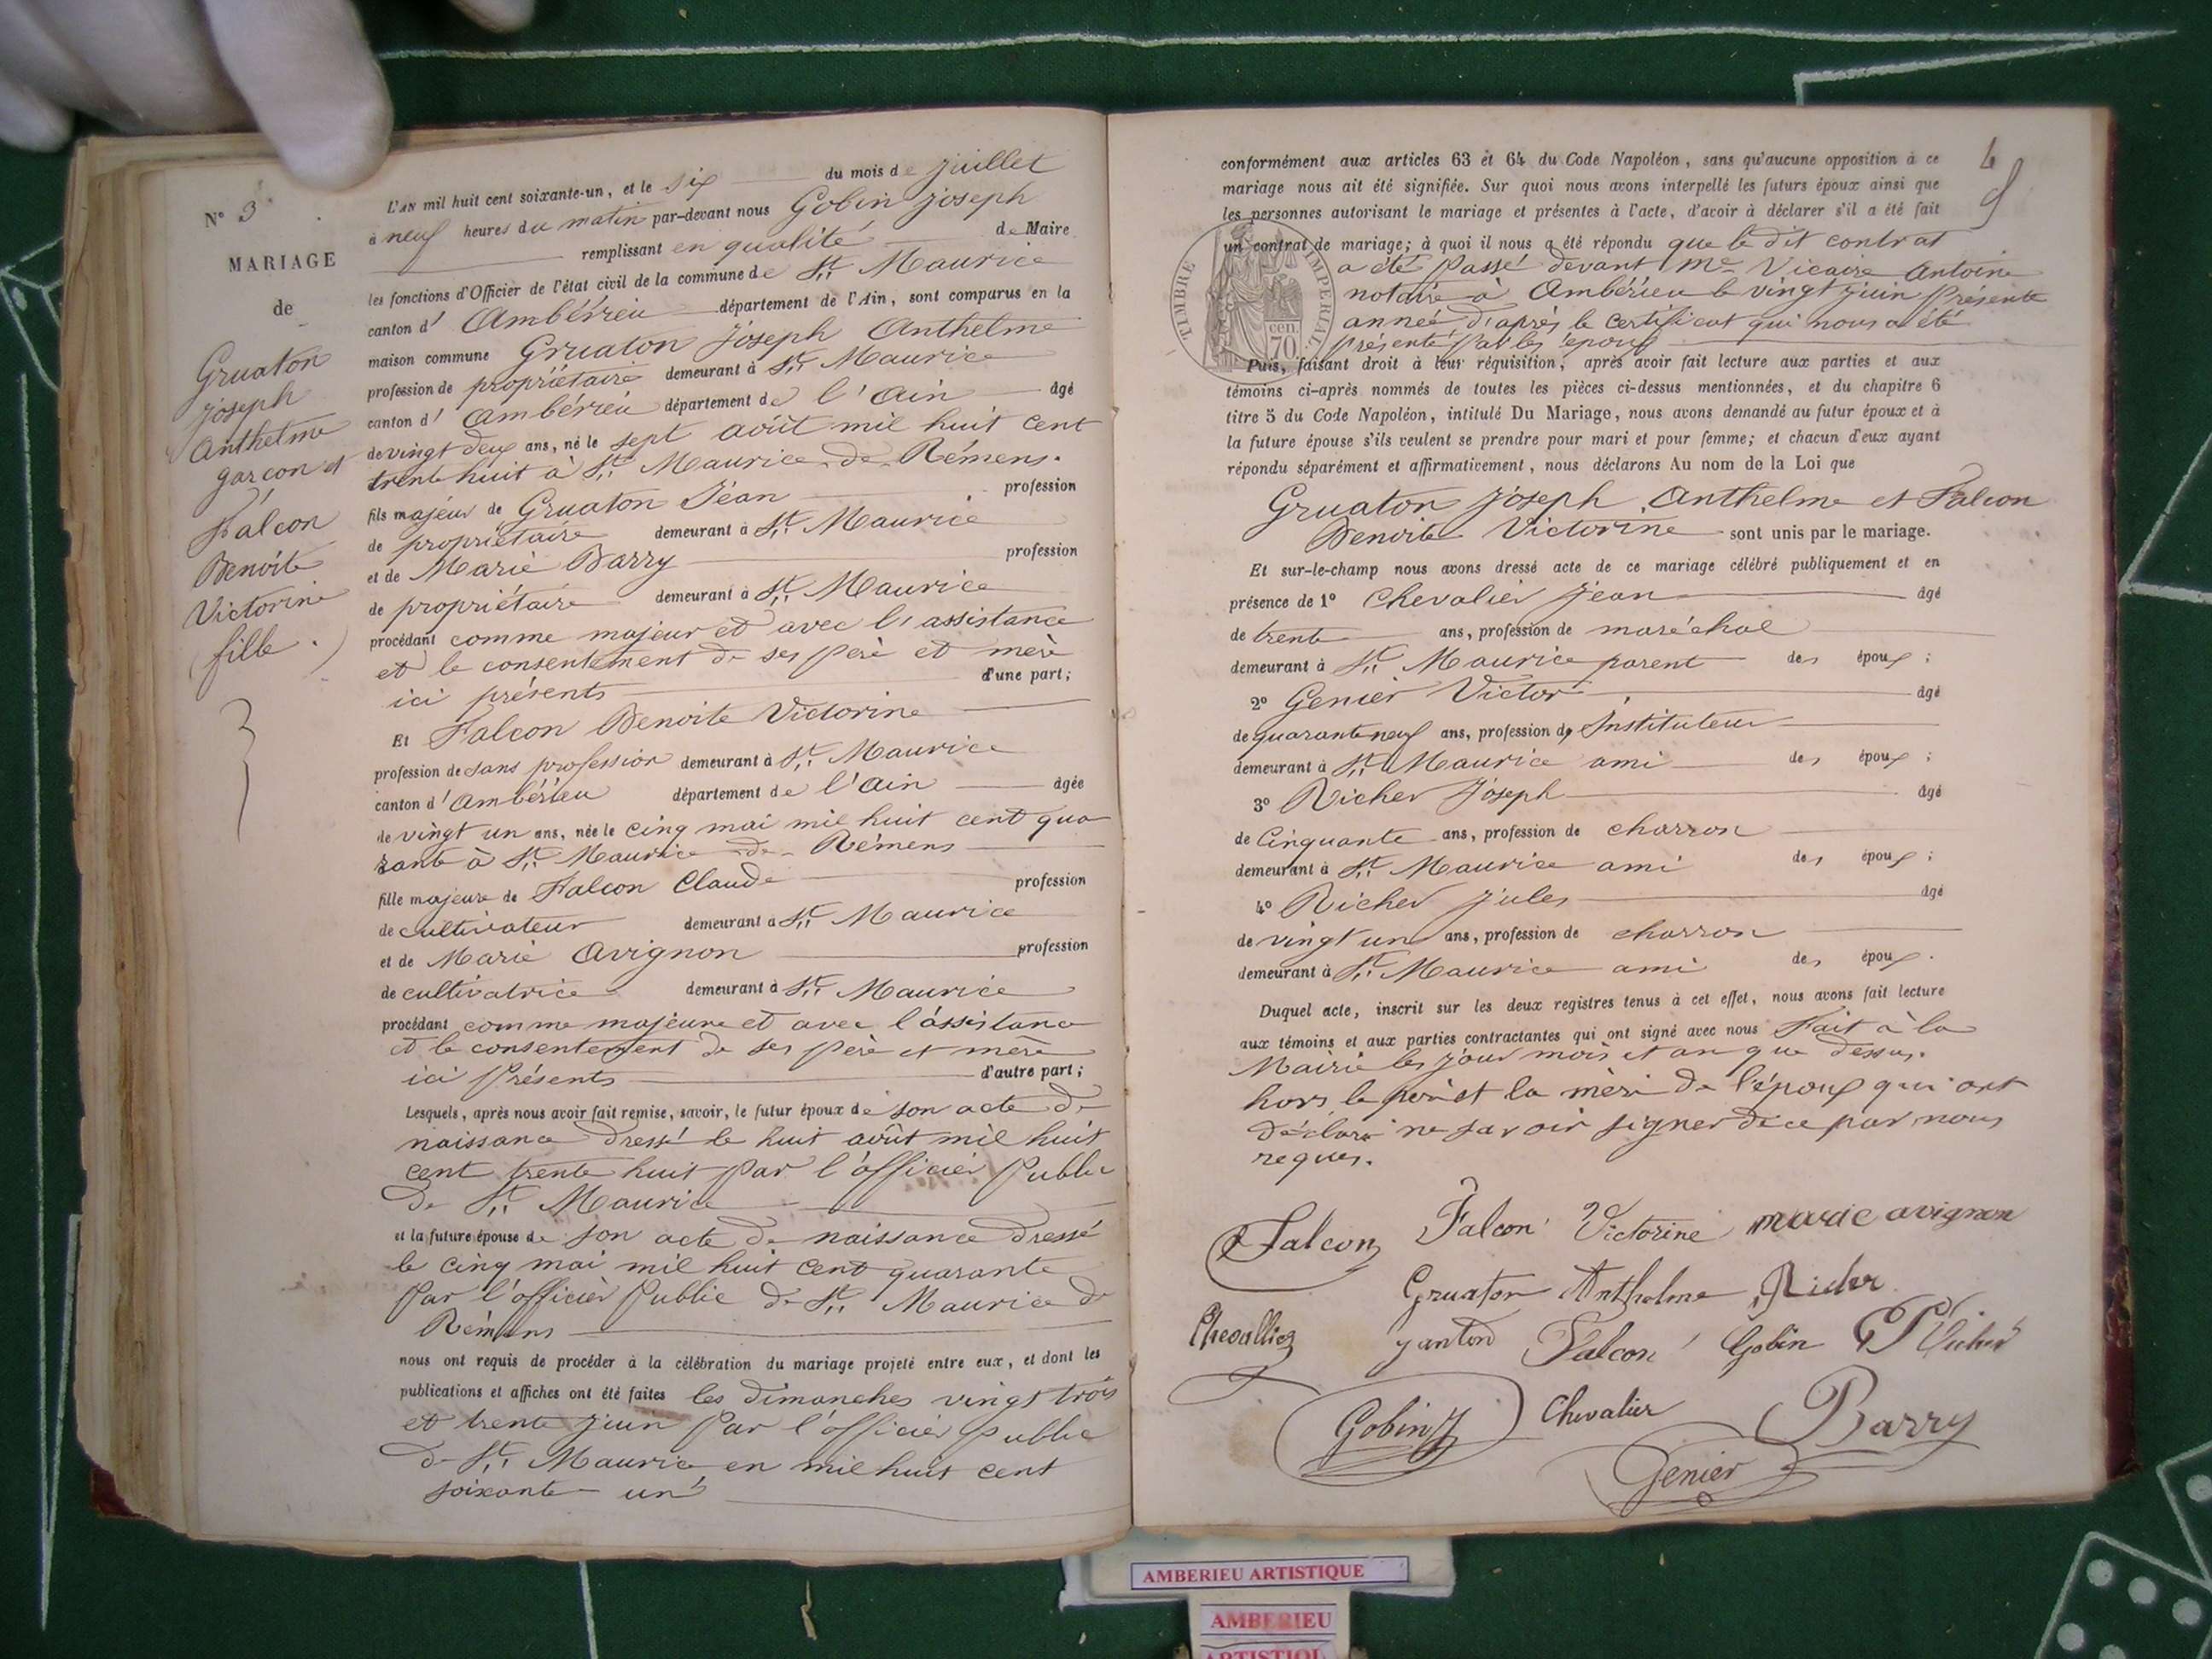 N° 3
MARIAGE
de
Gruaton
Joseph
Anthelme
garçon et
Falcon
Benoîte
Victorine
(fille.)
L'AN mil huit cent soixante-un, et le six du mois de juillet
à neuf heures du matin par-devant nous Gobin Joseph
remplissant en qualité de Maire
les fonctions d'Officier de l'état civil de la commune de St. Maurice
canton d' Ambérieu département de l'Ain, sont comparus en la
maison commune Gruaton Joseph Anthelme
profession de propriétaire demeurant à St. Maurice
canton d' Ambérieu département de l'Ain âgé
de vingt deux ans, né le sept août mil huit cent
trente huit à St. Maurice de Rémens.
fils majeur de Gruaton Jéan profession
de propriétaire demeurant à St. Maurice
et de Marie Barry profession
de propriétaire demeurant à St. Maurice
procédant comme majeur et avec l'assistance
et le consentement de ses père et mère
ici présents d'une part;
Et Falcon Benoite Victorine
profession de sans profession demeurant à St. Maurice
canton d' Ambérieu département de l'Ain âgée
de vingt un ans, née le cinq mai mil huit cent qua
rante à St. Maurice de Rémens
fille majeure de Falcon Claude profession
de cultivateur demeurant à St. Maurice
et de Marie Avignon profession
de cultivatrice demeurant à St. Maurice
procédant comme majeure et avec l'assistance
et le consentement de ses père et mère
ici présents d'autre part;
Lesquels, après nous avoir fait remise, savoir, le futur époux de son acte de
naissance dressé le huit août mil huit
cent trente huit par l'officier Public
de St. Maurice
et la future épouse de son acte de naissance dressé
le cinq mai mil huit cent quarante
Par l'officier Public de St. Maurice de
Rémens
nous ont requis de procéder à la célébration du mariage projeté entre eux, et dont les
publications et affiches ont été faites les dimanches vingt trois
et trente juin Par l'officier Public
de St. Maurice en mil huit cent
soixante un
4
conformément aux articles 63 et 64 du Code Napoléon, sans qu'aucune opposition à ce
mariage nous ait été signifiée. Sur quoi nous avons interpellé les futurs époux ainsi que
les personnes autorisant le mariage et présentes à l'acte, d'avoir à déclarer s'il a été fait
un contrat de mariage; à quoi il nous a été répondu que le dit contrat
a été Passé devant Me Vicaire Antoine
notaire à Ambérieu le vingt juin Présente
année d'après le certificat qui nous a été
présenté par les époux
TIMBRE IMPERIAL
cen.
70
Puis, faisant droit à leur réquisition, après avoir fait lecture aux parties et aux
témoins ci-après nommés de toutes les pièces ci-dessus mentionnées, et du chapitre 6
titre 5 du Code Napoléon, intitulé Du Mariage, nous avons demandé au futur époux et à
la future épouse s'ils veulent se prendre pour mari et pour femme; et chacun d'eux ayant
répondu séparément et affirmativement, nous déclarons Au nom de la Loi que
Gruaton Joseph Anthelme et Falcon
Benoite Victorine sont unis par le mariage.
Et sur-le-champ nous avons dressé acte de ce mariage célébré publiquement et en
présence de 1° Chevalier Jean âgé
de trente ans, profession de maréchal
demeurant à St. Maurice parent des époux;
2° Genier Victor âgé
de quarante neuf ans, profession de Instituteur
demeurant à St. Maurice ami des époux;
3° Richer Joseph âgé
de Cinquante ans, profession de charron
demeurant à St. Maurice ami des époux;
4° Richer Jules âgé
de vingt un ans, profession de charron
demeurant à St. Maurice ami des époux.
Duquel acte, inscrit sur les deux registres tenus à cet effet, nous avons fait lecture
aux témoins et aux parties contractantes qui ont signé avec nous Fait à la
Mairie les jour mois et an que dessus.
hors le père et la mère de l'époux qui ont
déclaré ne savoir signer de ce par nous
requis.
Falcon Falcon Victorine marie avignon
Gruaton Anthelme Richer
Chevallier Falcon Gobin Richer
Gobin J Chevalier Barry
Genier
AMBERIEU ARTISTIQUE
AMBERIEU
ARTISTIQU